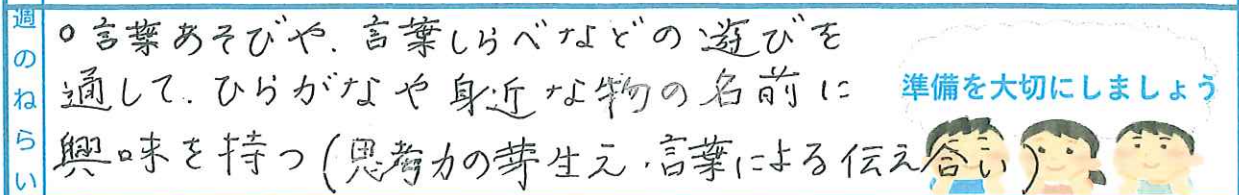 週のねらい
○言葉あそびや、言葉しらべなどの遊びを
通して、ひらがなや身近な物の名前に
興味を持つ(思考力の芽生え・言葉による伝え合い)
準備を大切にしましょう